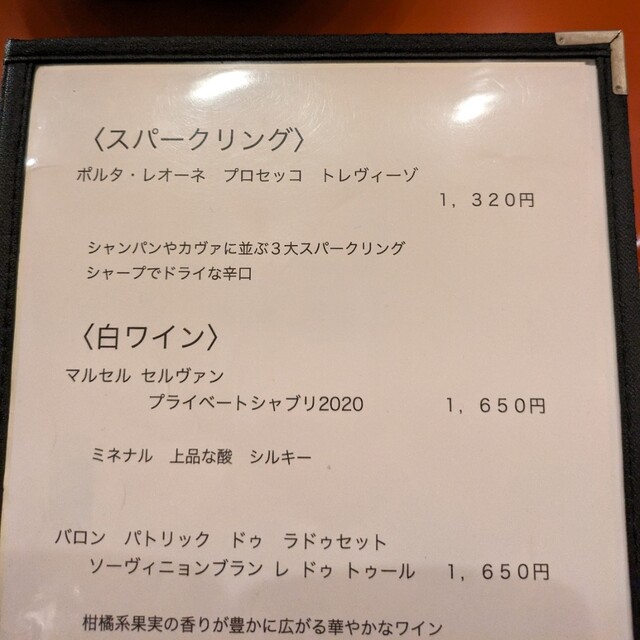 〈スパークリング〉
ポルタ・レオーネ　プロセッコ　トレヴィーゾ
1，320円
シャンパンやカヴァに並ぶ3大スパークリング
シャープでドライな辛口
〈白ワイン〉
マルセル セルヴァン
プライベートシャブリ2020　1，650円
ミネナル　上品な酸　シルキー
バロン　パトリック　ドゥ　ラドゥセット
ソーヴィニョンブラン レ ドゥ トゥール　1，650円
柑橘系果実の香りが豊かに広がる華やかなワイン